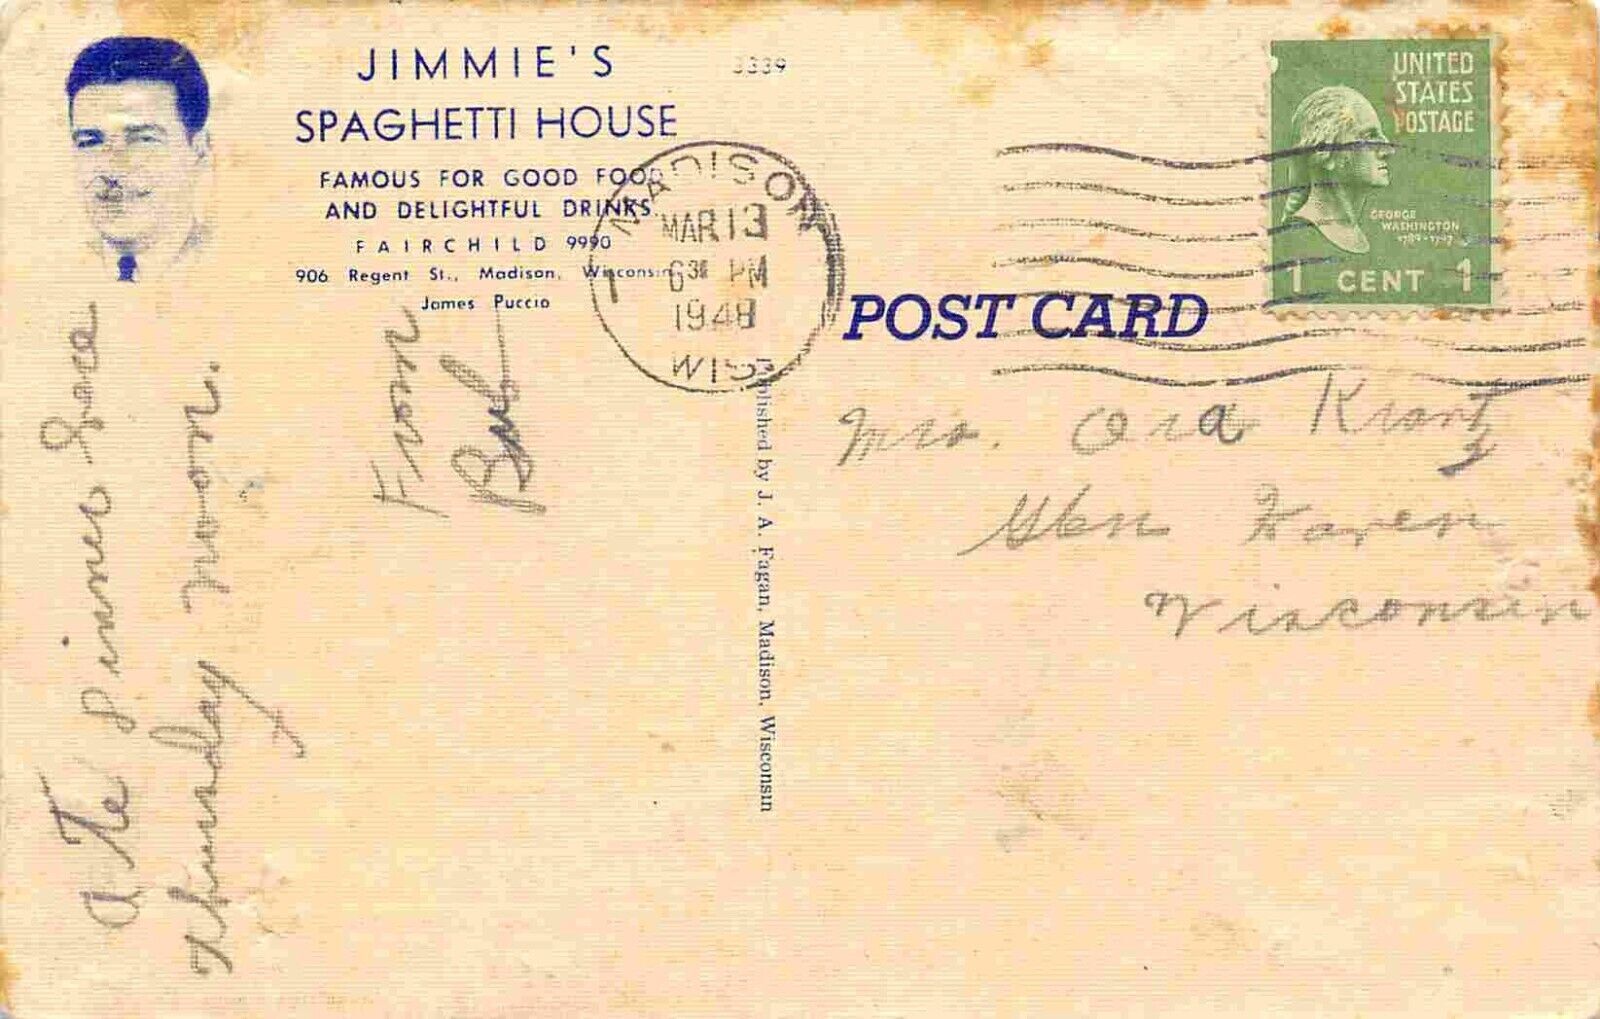 JIMMIE'S
SPAGHETTI HOUSE
FAMOUS FOR GOOD FOOD
AND DELIGHTFUL DRINKS
FAIRCHILD 9990
906 Regent St., Madison, Wisconsin
James Puccio
3339
MADISON
MAR 13
6 30 PM
1948
1
WIS
UNITED
STATES
POSTAGE
GEORGE
WASHINGTON
1789-1797
1 CENT 1
POST CARD
Ate dinner here
Thursday noon.
From
Bub
Published by J. A. Fagan, Madison, Wisconsin
Mrs. Ora Krantz
Glen Haven
Wisconsin